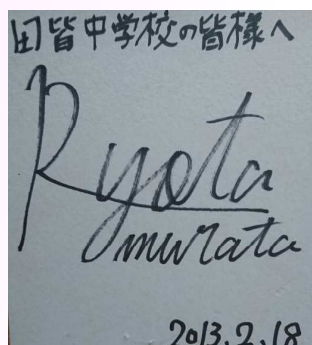 田皆中学校の皆様へ
Ryota
murata
2013.2.18